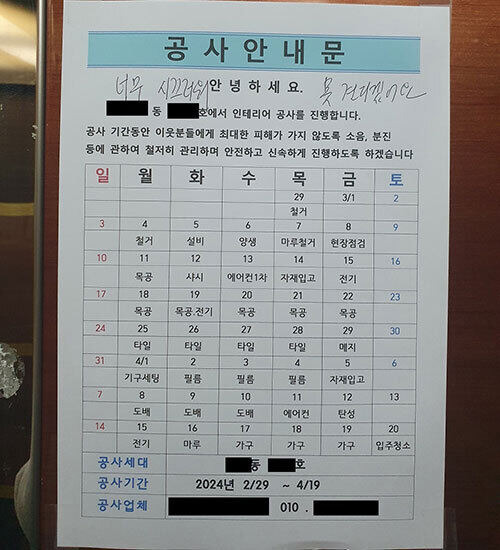 공사안내문
너무 시끄러워 안녕하세요. 못 견디겠어요
동 호에서 인테리어 공사를 진행합니다.
공사 기간동안 이웃분들에게 최대한 피해가 가지 않도록 소음, 분진
등에 관하여 철저히 관리하며 안전하고 신속하게 진행하도록 하겠습니다
일 월 화 수 목 금 토
29 3/1 2
철거
3 4 5 6 7 8 9
철거 설비 양생 마루철거 현장점검
10 11 12 13 14 15 16
목공 샤시 에어컨1차 자재입고 전기
17 18 19 20 21 22 23
목공 목공.전기 목공 목공 목공
24 25 26 27 28 29 30
타일 타일 타일 타일 메지
31 4/1 2 3 4 5 6
기구세팅 필름 필름 필름 자재입고
7 8 9 10 11 12 13
도배 도배 도배 에어컨 탄성
14 15 16 17 18 19 20
전기 마루 가구 가구 가구 입주청소
공사세대 동 호
공사기간 2024년 2/29 ~ 4/19
공사업체 010 .